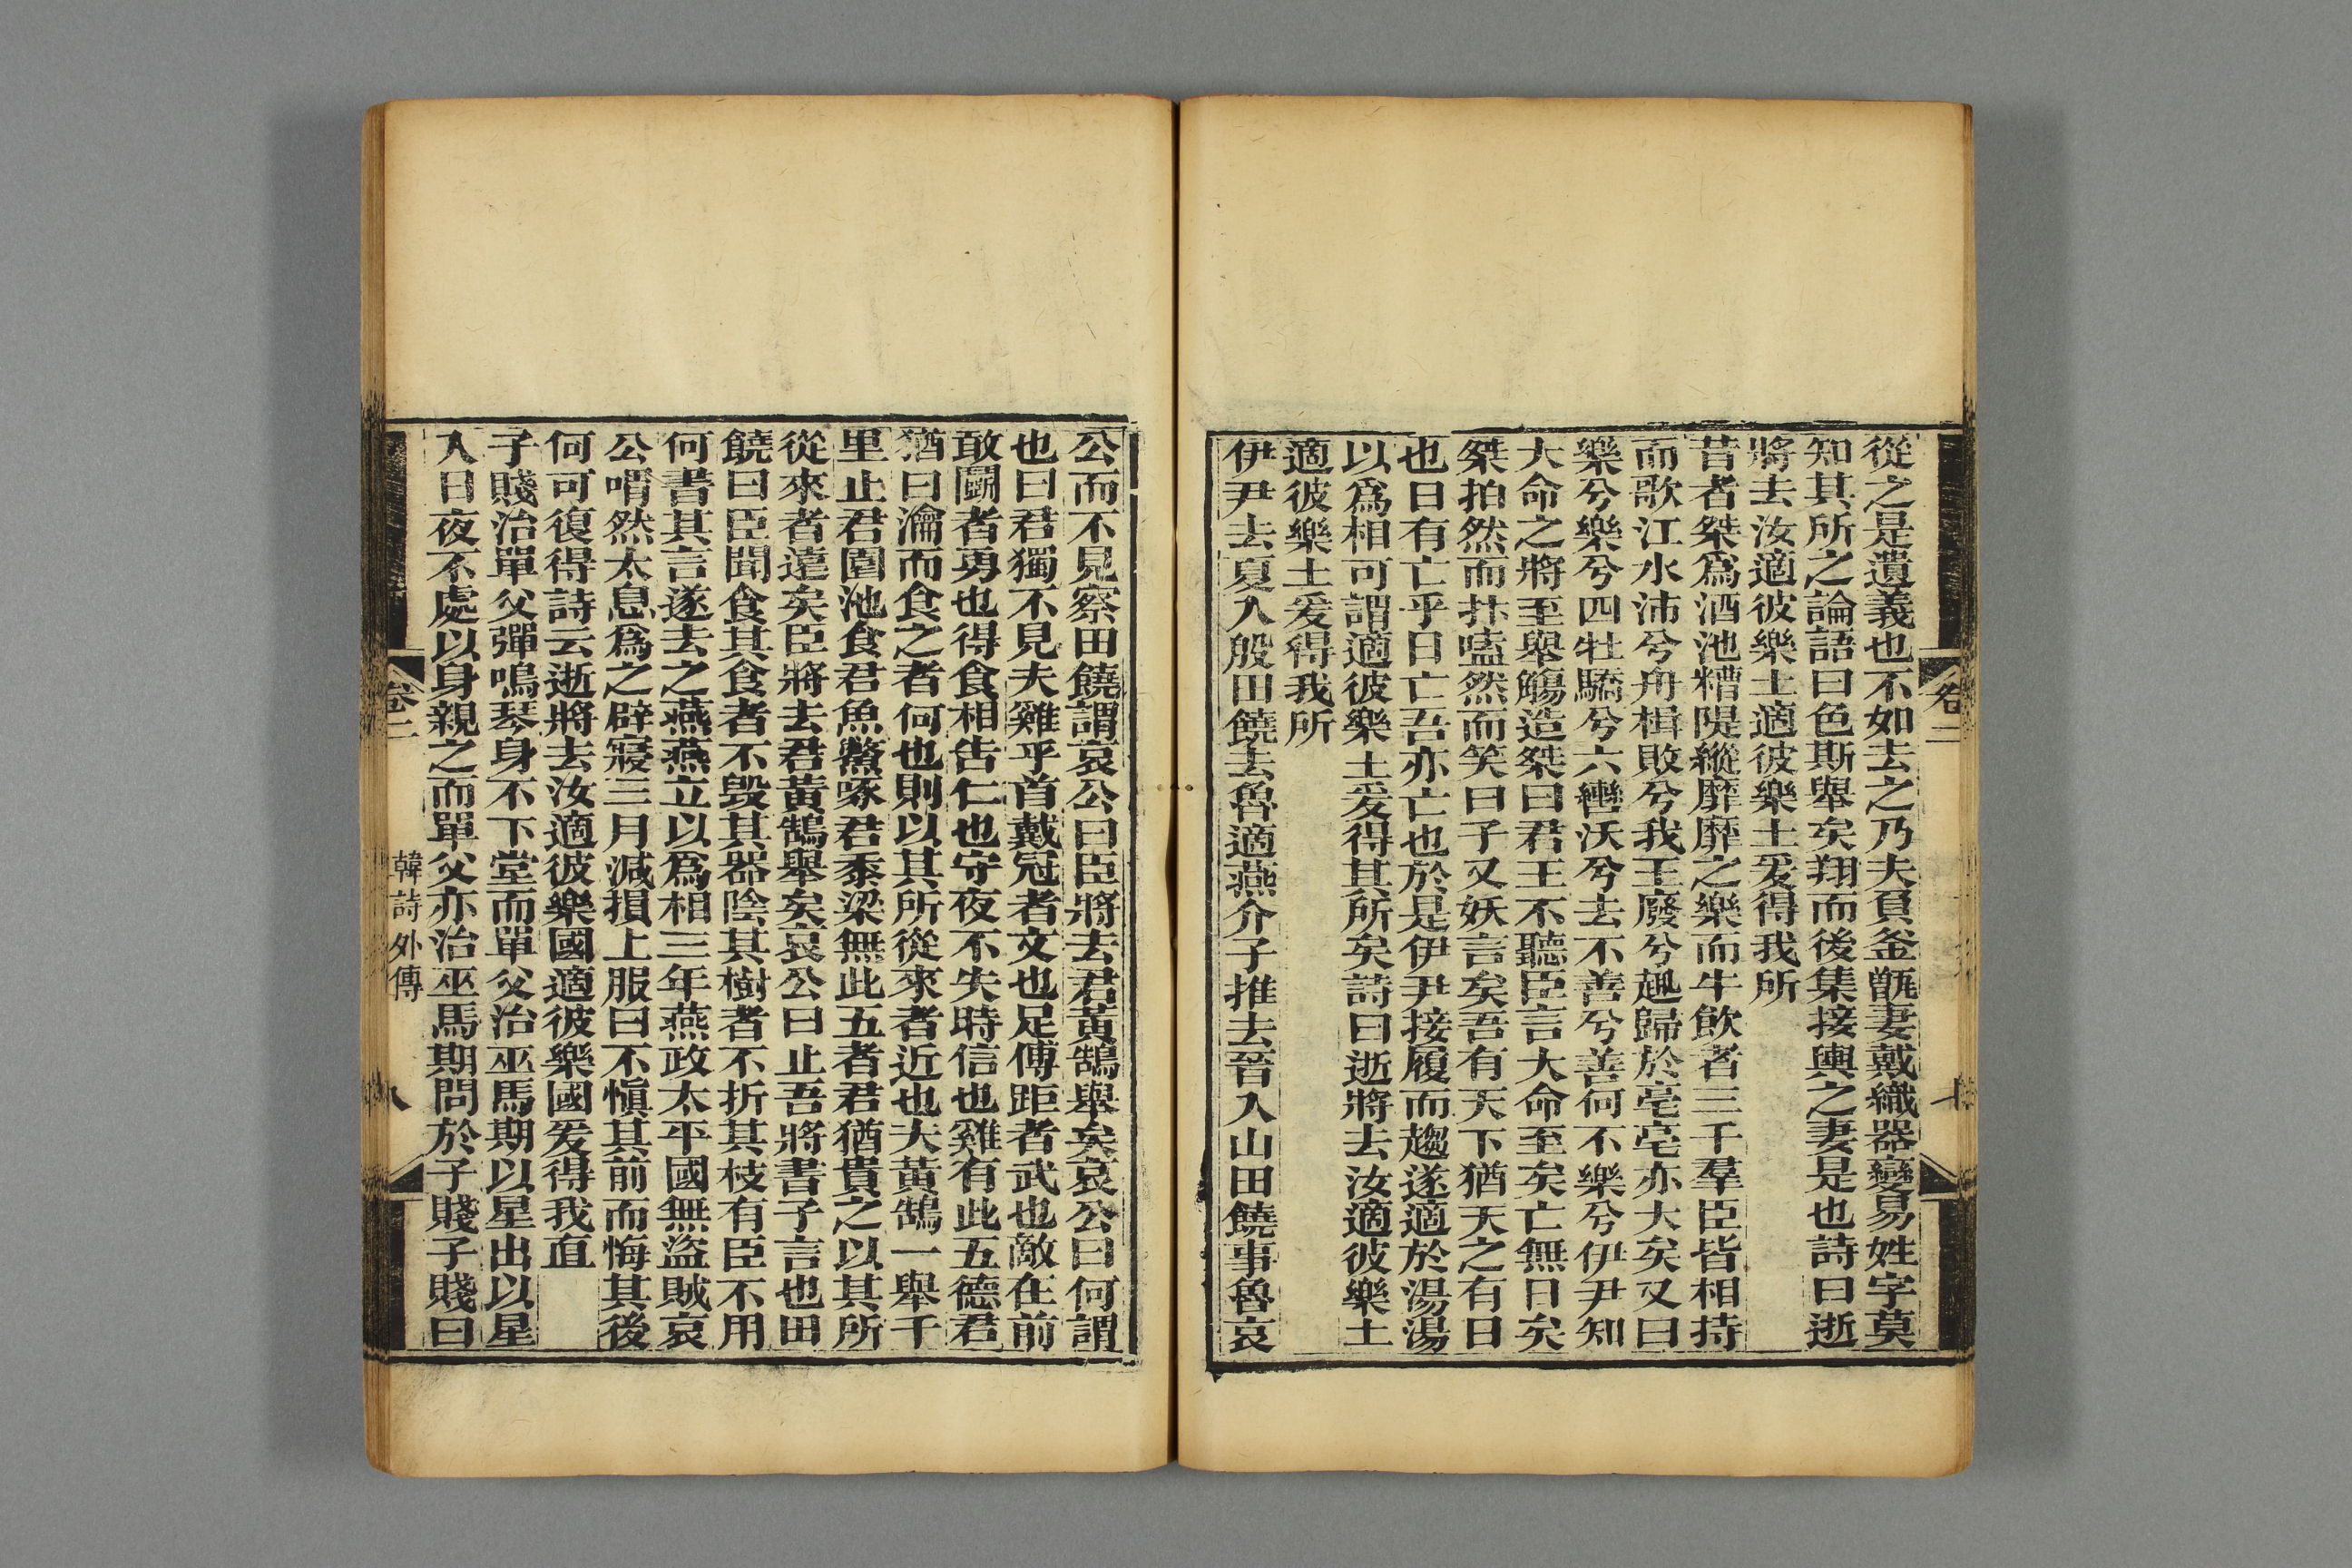 從之是遺義也不如去之乃夫負釜甑妻戴織器變易姓字莫
知其所之論語曰色斯舉矣翔而後集接輿之妻是也詩曰逝
將去汝適彼樂土適彼樂土爰得我所
昔者桀爲酒池糟隄縱靡靡之樂而牛飲者三千羣臣皆相持
而歌江水沛兮舟楫敗兮我王廢兮趣歸於亳亳亦大矣又曰
樂兮樂兮四牡驕兮六轡沃兮去不善兮善何不樂兮伊尹知
大命之將至舉觴造桀曰君王不聽臣言大命至矣亡無日矣
桀拍然而抃嗑然而笑曰子又妖言矣吾有天下猶天之有日
也日有亡乎日亡吾亦亡也於是伊尹接履而趨遂適於湯湯
以爲相可謂適彼樂土爰得其所矣詩曰逝將去汝適彼樂土
適彼樂土爰得我所
伊尹去夏入殷田饒去魯適燕介子推去晉入山田饒事魯哀
卷二
七
公而不見察田饒謂哀公曰臣將去君黃鵠舉矣哀公曰何謂
也曰君獨不見夫雞乎首戴冠者文也足傅距者武也敵在前
敢鬬者勇也得食相告仁也守夜不失時信也雞有此五德君
猶曰瀹而食之者何也則以其所從來者近也夫黃鵠一舉千
里止君園池食君魚鱉啄君黍粱無此五者君猶貴之以其所
從來者遠矣臣將去君黃鵠舉矣哀公曰止吾將書子言也田
饒曰臣聞食其食者不毀其器陰其樹者不折其枝有臣不用
何書其言遂去之燕燕立以爲相三年燕政太平國無盜賊哀
公喟然太息爲之辟寢三月減損上服曰不愼其前而悔其後
何可復得詩云逝將去汝適彼樂國適彼樂國爰得我直
子賤治單父彈鳴琴身不下堂而單父治巫馬期以星出以星
入日夜不處以身親之而單父亦治巫馬期問於子賤子賤曰
卷二
韓詩外傳
八